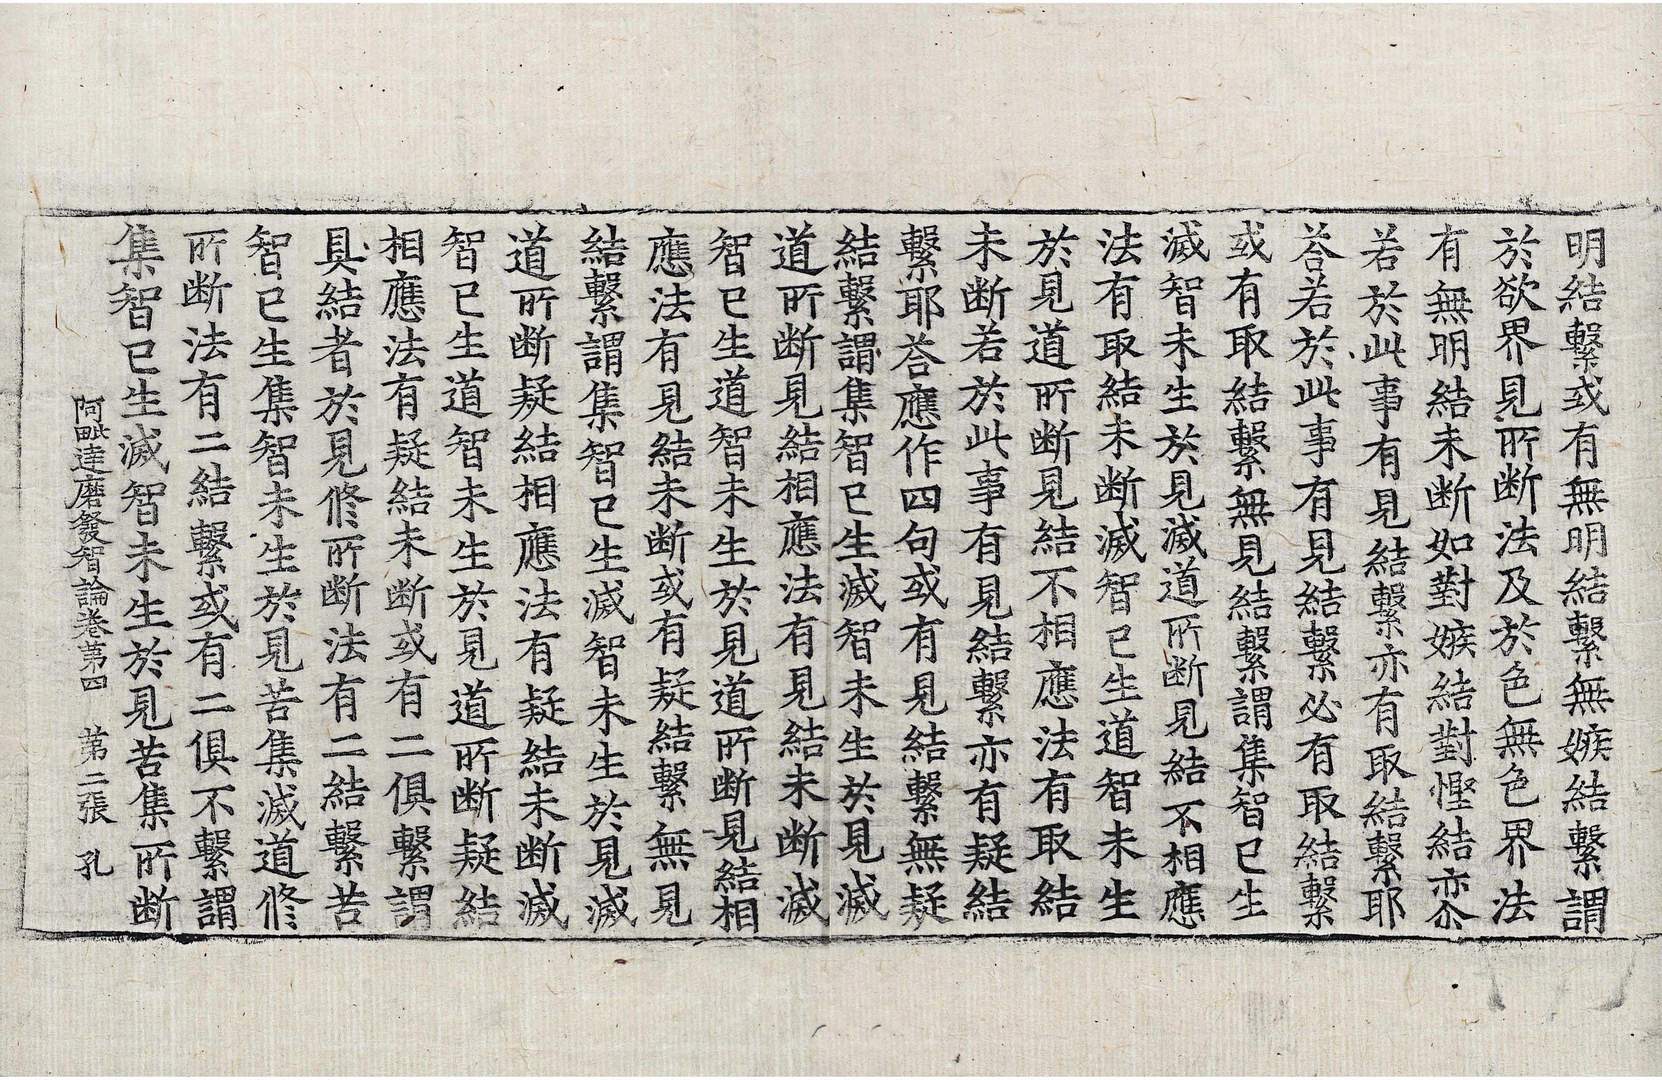 明結繫或有無明結繫無嫉結繫謂
於欲界見所断法及於色無色界法
有無明結未断如對嫉結對慳結亦尒
若於此事有見結繫亦有取結繫耶
荅若於此事有見結繫必有取結繫
或有取結繫無見結繫謂集智已生
滅智未生於見滅道所断見結不相應
法有取結未断滅智已生道智未生
於見道所断見結不相應法有取結
未断若於此事有見結繫亦有疑結
繫耶荅應作四句或有見結繫無疑
結繫謂集智已生滅智未生於見滅
道所断見結相應法有見結未断滅
智已生道智未生於見道所断見結相
應法有見結未断或有疑結繫無見
結繫謂集智已生滅智未生於見滅
道所断疑結相應法有疑結未断滅
智已生道智未生於見道所断疑結
相應法有疑結未断或有二俱繫謂
具結者於見修所断法有二結繫苦
智已生集智未生於見苦集滅道修
所断法有二結繫或有二俱不繫謂
集智已生滅智未生於見苦集所断
阿毗達磨發智論卷第四 第二張 孔